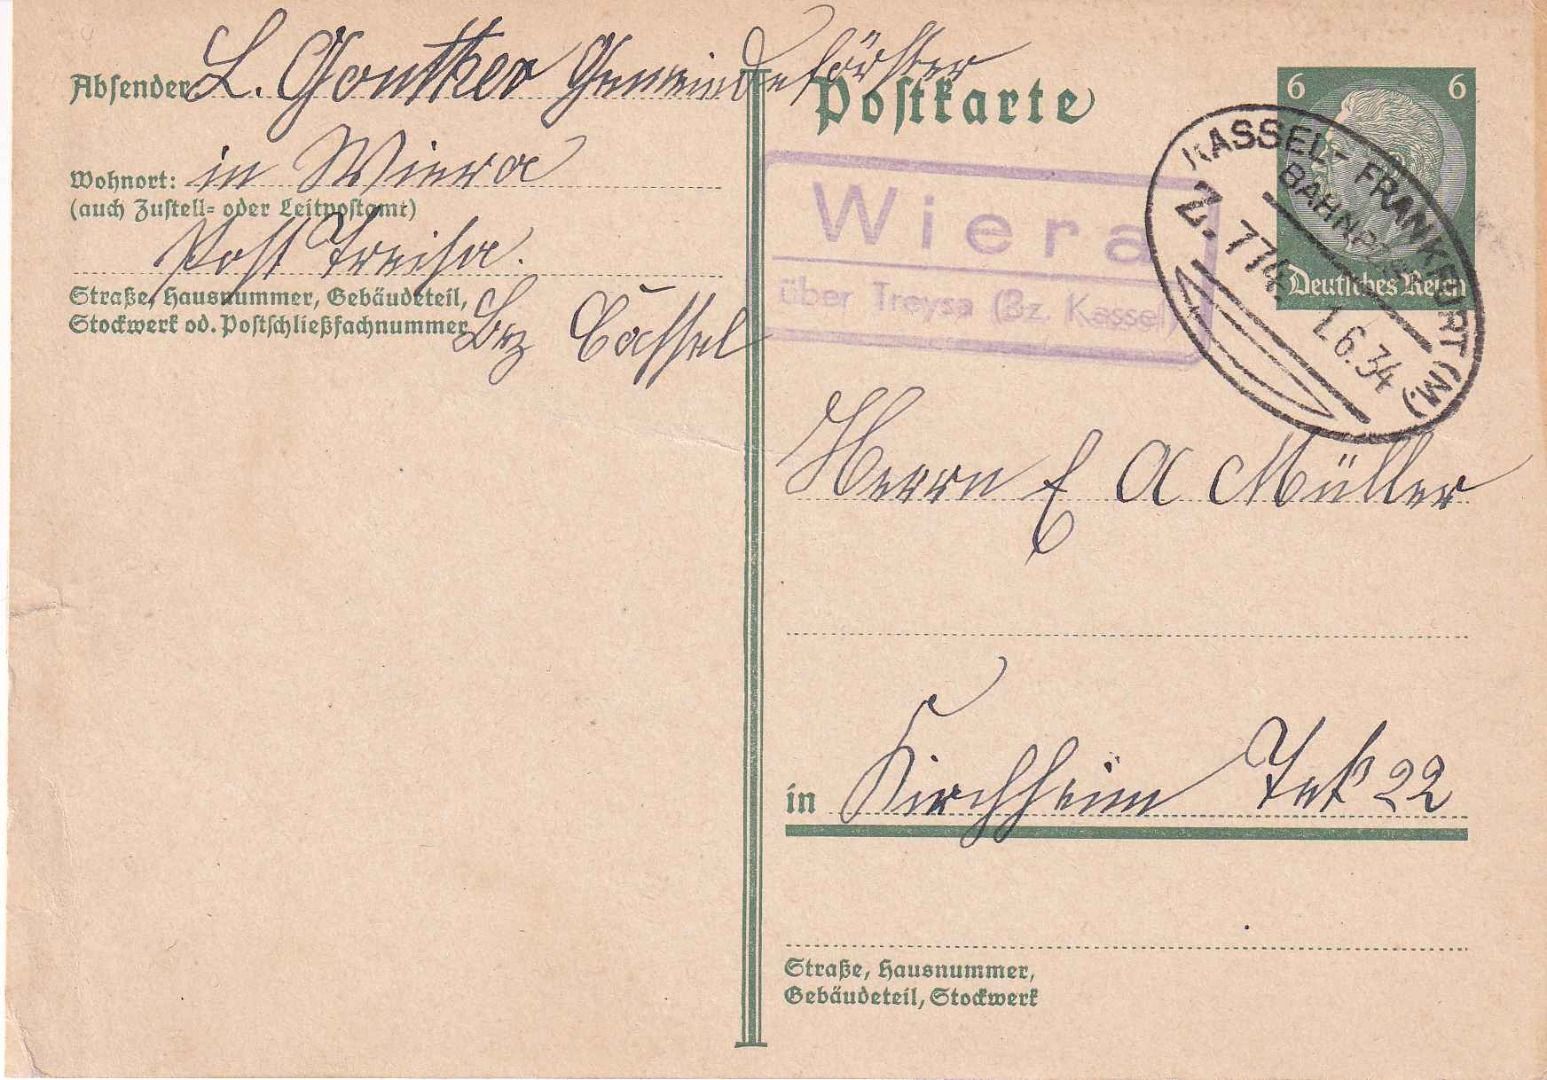 Absender L. Gonther Gemeindeförster
Wohnort: in Wiera
(auch Zustell- oder Leitpostamt)
Post Treisa.
Straße, Hausnummer, Gebäudeteil,
Stockwerk od. Postschließfachnummer
Bez Cassel
Postkarte
6 6
Deutsches Reich
KASSEL-FRANKFURT (M.)
BAHNPOST
Z. 774
1.6.34
Wiera
über Treysa (Bz. Kassel)
Herrn E A Müller
in Kirchheim Teck 22
Straße, Hausnummer,
Gebäudeteil, Stockwerk